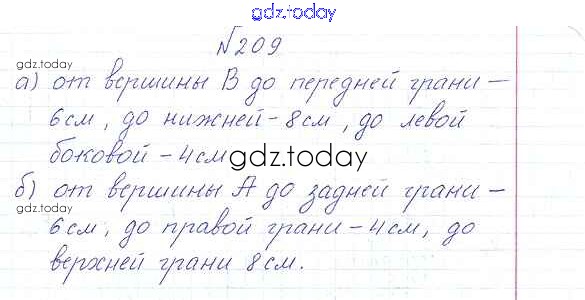 gdz.today
№209
gdz.today
а) от вершины В до передней грани –
6 см, до нижней – 8 см, до левой
боковой – 4 см
gdz.today
б) от вершины А до задней грани –
gdz.today
6 см, до правой грани – 4 см, до
верхней грани 8 см.